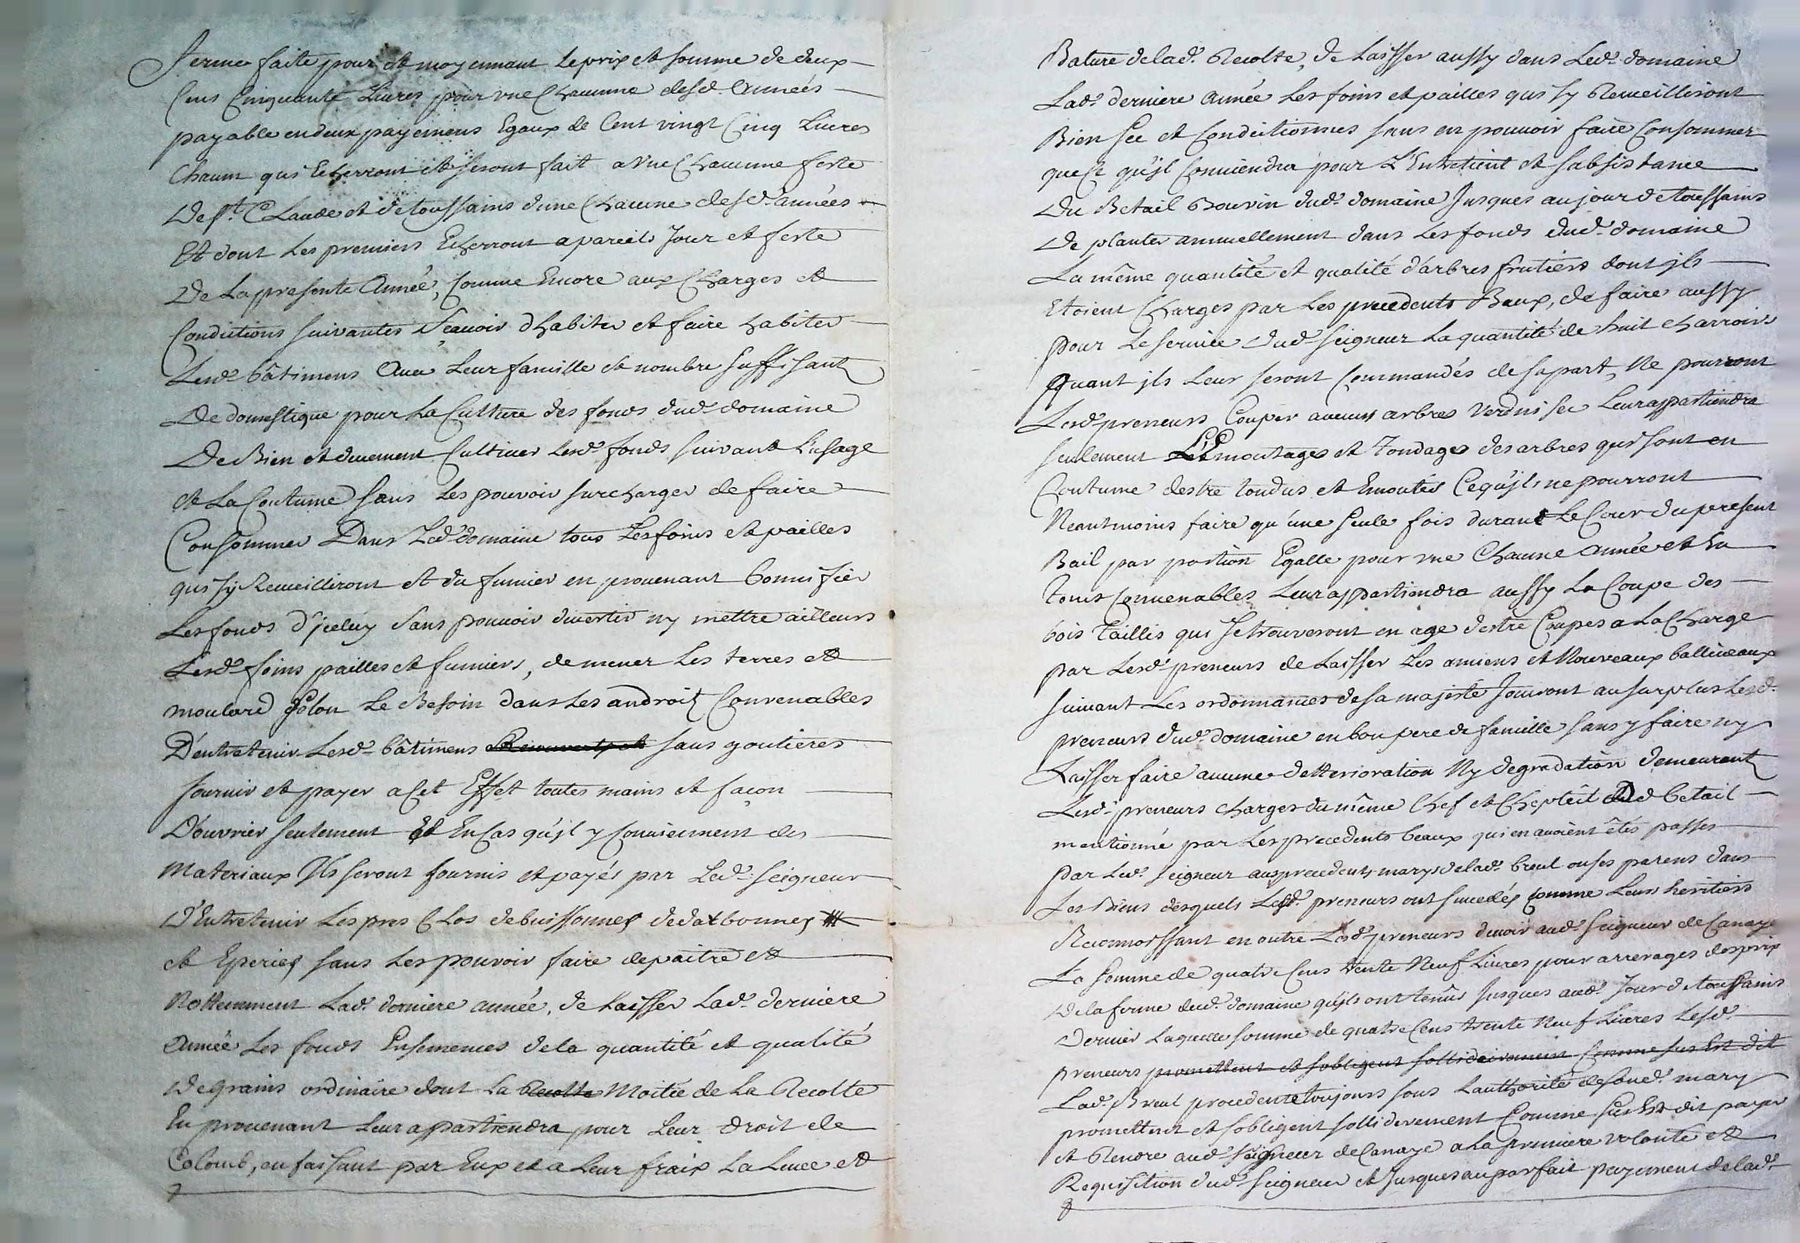 Ferme faite pour et moyennant le prix et somme de deux
Cens Cinquante Livres pour vne Chacunne desd. années
payable en deux payemens Egaux de Cent vingt Cinq Livres
Chacun qui Echerront et seront fait a vne Chacunne feste
De st. Claude et de toussains d'une Chacune desd. années
Et dont les premiers Echerront a pareils Jour et feste
De La presente Année, Comme Encore aux Charges et
Conditions suivantes sçauoir d'habiter et faire habiter
Lesd. bâtimens Avec Leur famille et nombre suffisant
De domestique pour La Culture des fonds dud. domaine
De Bien et duement Cultiver Lesd. fonds suivant L'usage
et La Coutume sans Les pouvoir surcharger de faire
Consommer Dans Led. domaine tous Les foins et pailles
qui sy Recueilliront et du fumier en prouenant bonnifier
Les fonds d'jceluy sans pouvoir divertir ny mettre ailleurs
Lesd. foins pailles et fumiers, de mener Les terres et
moulard selon Le Besoin dans Les androit Convenables
D'entretenir Lesd. bâtimens sans goutieres
fournir et payer a Cet Effet toutes mains et façon
D'ouvrier seulement et En Cas qu'jl y Conviennent des
Materiaux Ils seront fournis et payés par Led. seigneur
D'Entretenir Les pres Clos de buissonnes
et Eperies sans Les pouvoir faire depaitre et
Nottemment Lad. derniere année, de Laisser Lad. derniere
Année Les fonds Ensemencés de la quantité et qualité
De grains ordinaire dont La Recolte Moitié de La Recolte
En prouenant Leur appartiendra pour Leur droit de
Colomb, en faisant par Eux et a Leur fraix La Levée et
Bature de lad. Recolte, de Laisser aussy dans Led. domaine
Lad. derniere année Les foins et pailles qui sy Recueilliront
Bien sec et Conditionnés sans en pouvoir faire Consommer
que Ce qu'jl Conviendra pour L'Entretient et subsistance
Du Betail Bouvin dud. domaine Jusques au jour de toussains
De planter annuellement dans Les fonds dud. domaine
La même quantité et qualité d'arbres fruitiers dont jls
Etoient Chargés par Les precedents Baux, de faire aussy
pour Le service dud. seigneur La quantité de huit charrois
Quant jls Leur seront Commandés de sa part, Ne pourront
Lesd. preneurs Couper aucuns arbres verd ni sec Leur appartiendra
seulement Les Emoutages et Tondages des arbres qui sont en
Coutume d'estre tondus et Emoutés Ce qu'jls ne pourront
Neantmoins faire qu'une seule fois durant Le Cour du present
Bail par portion Egalle pour vne Chacune année et En
tems Convenables Leur appartiendra aussy La Coupe des
bois Taillis qui se trouveront en age d'estre Coupés a La Charge
par Lesd. preneurs de Laisser Les anciens et Nouveaux balliveaux
suivant Les ordonnances de sa majesté Jouiront au surplus Lesd.
preneurs dud. domaine en bon pere de famille sans y faire ny
Laisser faire aucune deterioration Ny degradation demeurant
Lesd. preneurs chargés du même Chef et Chepteil dud betail
mentionné par Les precedents beaux qui en avoient êtés passés
par Led. seigneur aux precedents marys de lad. breul ou ses parens dans
Les Biens desquels Lesd. preneurs ont succedés comme Leurs heritiers
Reconnoissant en outre Lesd. preneurs devoir aud. seigneur de Canaye
La somme de quatre Cens trente Neuf Livres pour arrerages des prix
De la ferme dud. domaine qu'jls ont tenûs Jusques aud. Jour de toussains
Dernier Laquelle somme de quatre Cens trente Neuf Livres Lesd.
preneurs promettent et sobligent sollidairement Comme sus Est dit
Lad. Breul procedente toujours sous L'authorité de soud. mary
promettent et sobligent sollidairement Comme sus Est dit payer
et Rendre aud. seigneur de Canaye a La premiere volonté et
Requisition dud. seigneur et Jusques au parfait payement de lad.